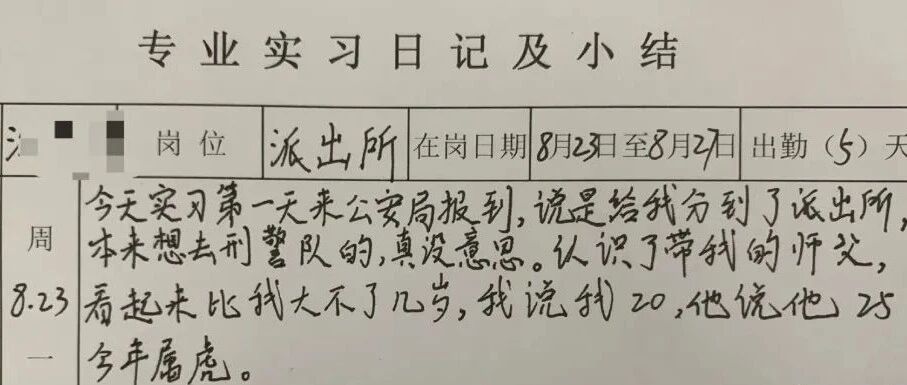 专业实习日记及小结
岗位 派出所 在岗日期 8月23日至8月27日 出勤（5）天
周 8.23 一
今天实习第一天来公安局报到,说是给我分到了派出所,
本来想去刑警队的,真没意思。认识了带我的师父,
看起来比我大不了几岁,我说我20,他说他25
今年属虎。